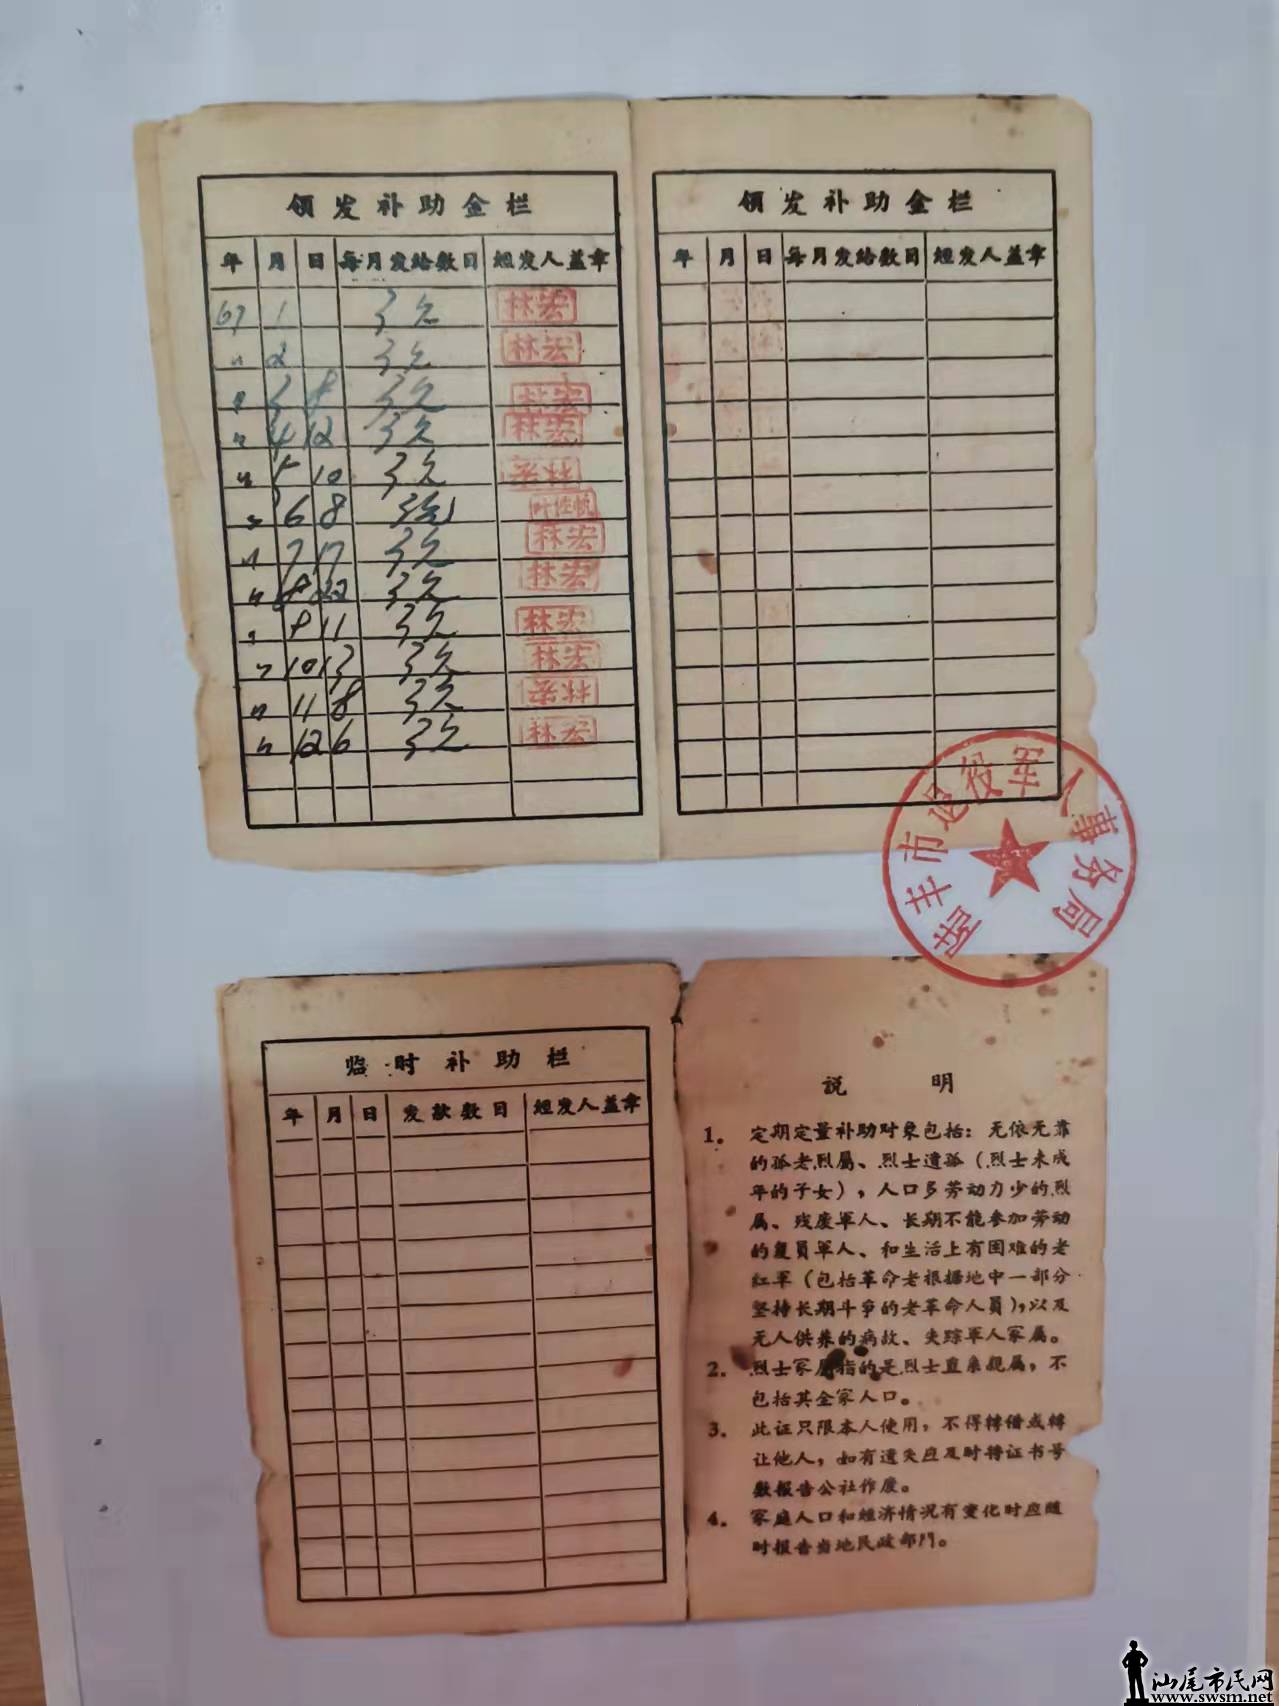 领发补助金栏
年 月 日 每月发给数目 经发人盖章
67 1 3元 林宏
〃 2 3元 林宏
〃 3 8 3元 林宏
〃 4 12 3元 林宏
〃 5 10 3元 林宏
〃 6 8 3元
〃 7 17 3元 林宏
〃 8 22 3元 林宏
〃 9 11 3元 林宏
〃 10 13 3元 林宏
〃 11 8 3元 林宏
〃 12 6 3元 林宏
领发补助金栏
年 月 日 每月发给数目 经发人盖章
陆丰市退役军人事务局
临时补助栏
年 月 日 发款数目 经发人盖章
説 明
1. 定期定量补助对象包括：无依无靠
的孤老烈属、烈士遗孤（烈士未成
年的子女），人口多劳动力少的烈
属、残废軍人、长期不能参加劳动
的复員軍人、和生活上有困难的老
红军（包括革命老根据地中一部分
坚持长期斗争的老革命人員），以及
无人供养的病故、失踪軍人家属。
2. 烈士家属指的是烈士直系親属，不
包括其全家人口。
3. 此证只限本人使用，不得轉借或轉
让他人，如有遗失应及时将证书号
数报告公社作废。
4. 家庭人口和经济情况有变化时应随
时报告当地民政部门。
汕尾市民网
www.swsm.net